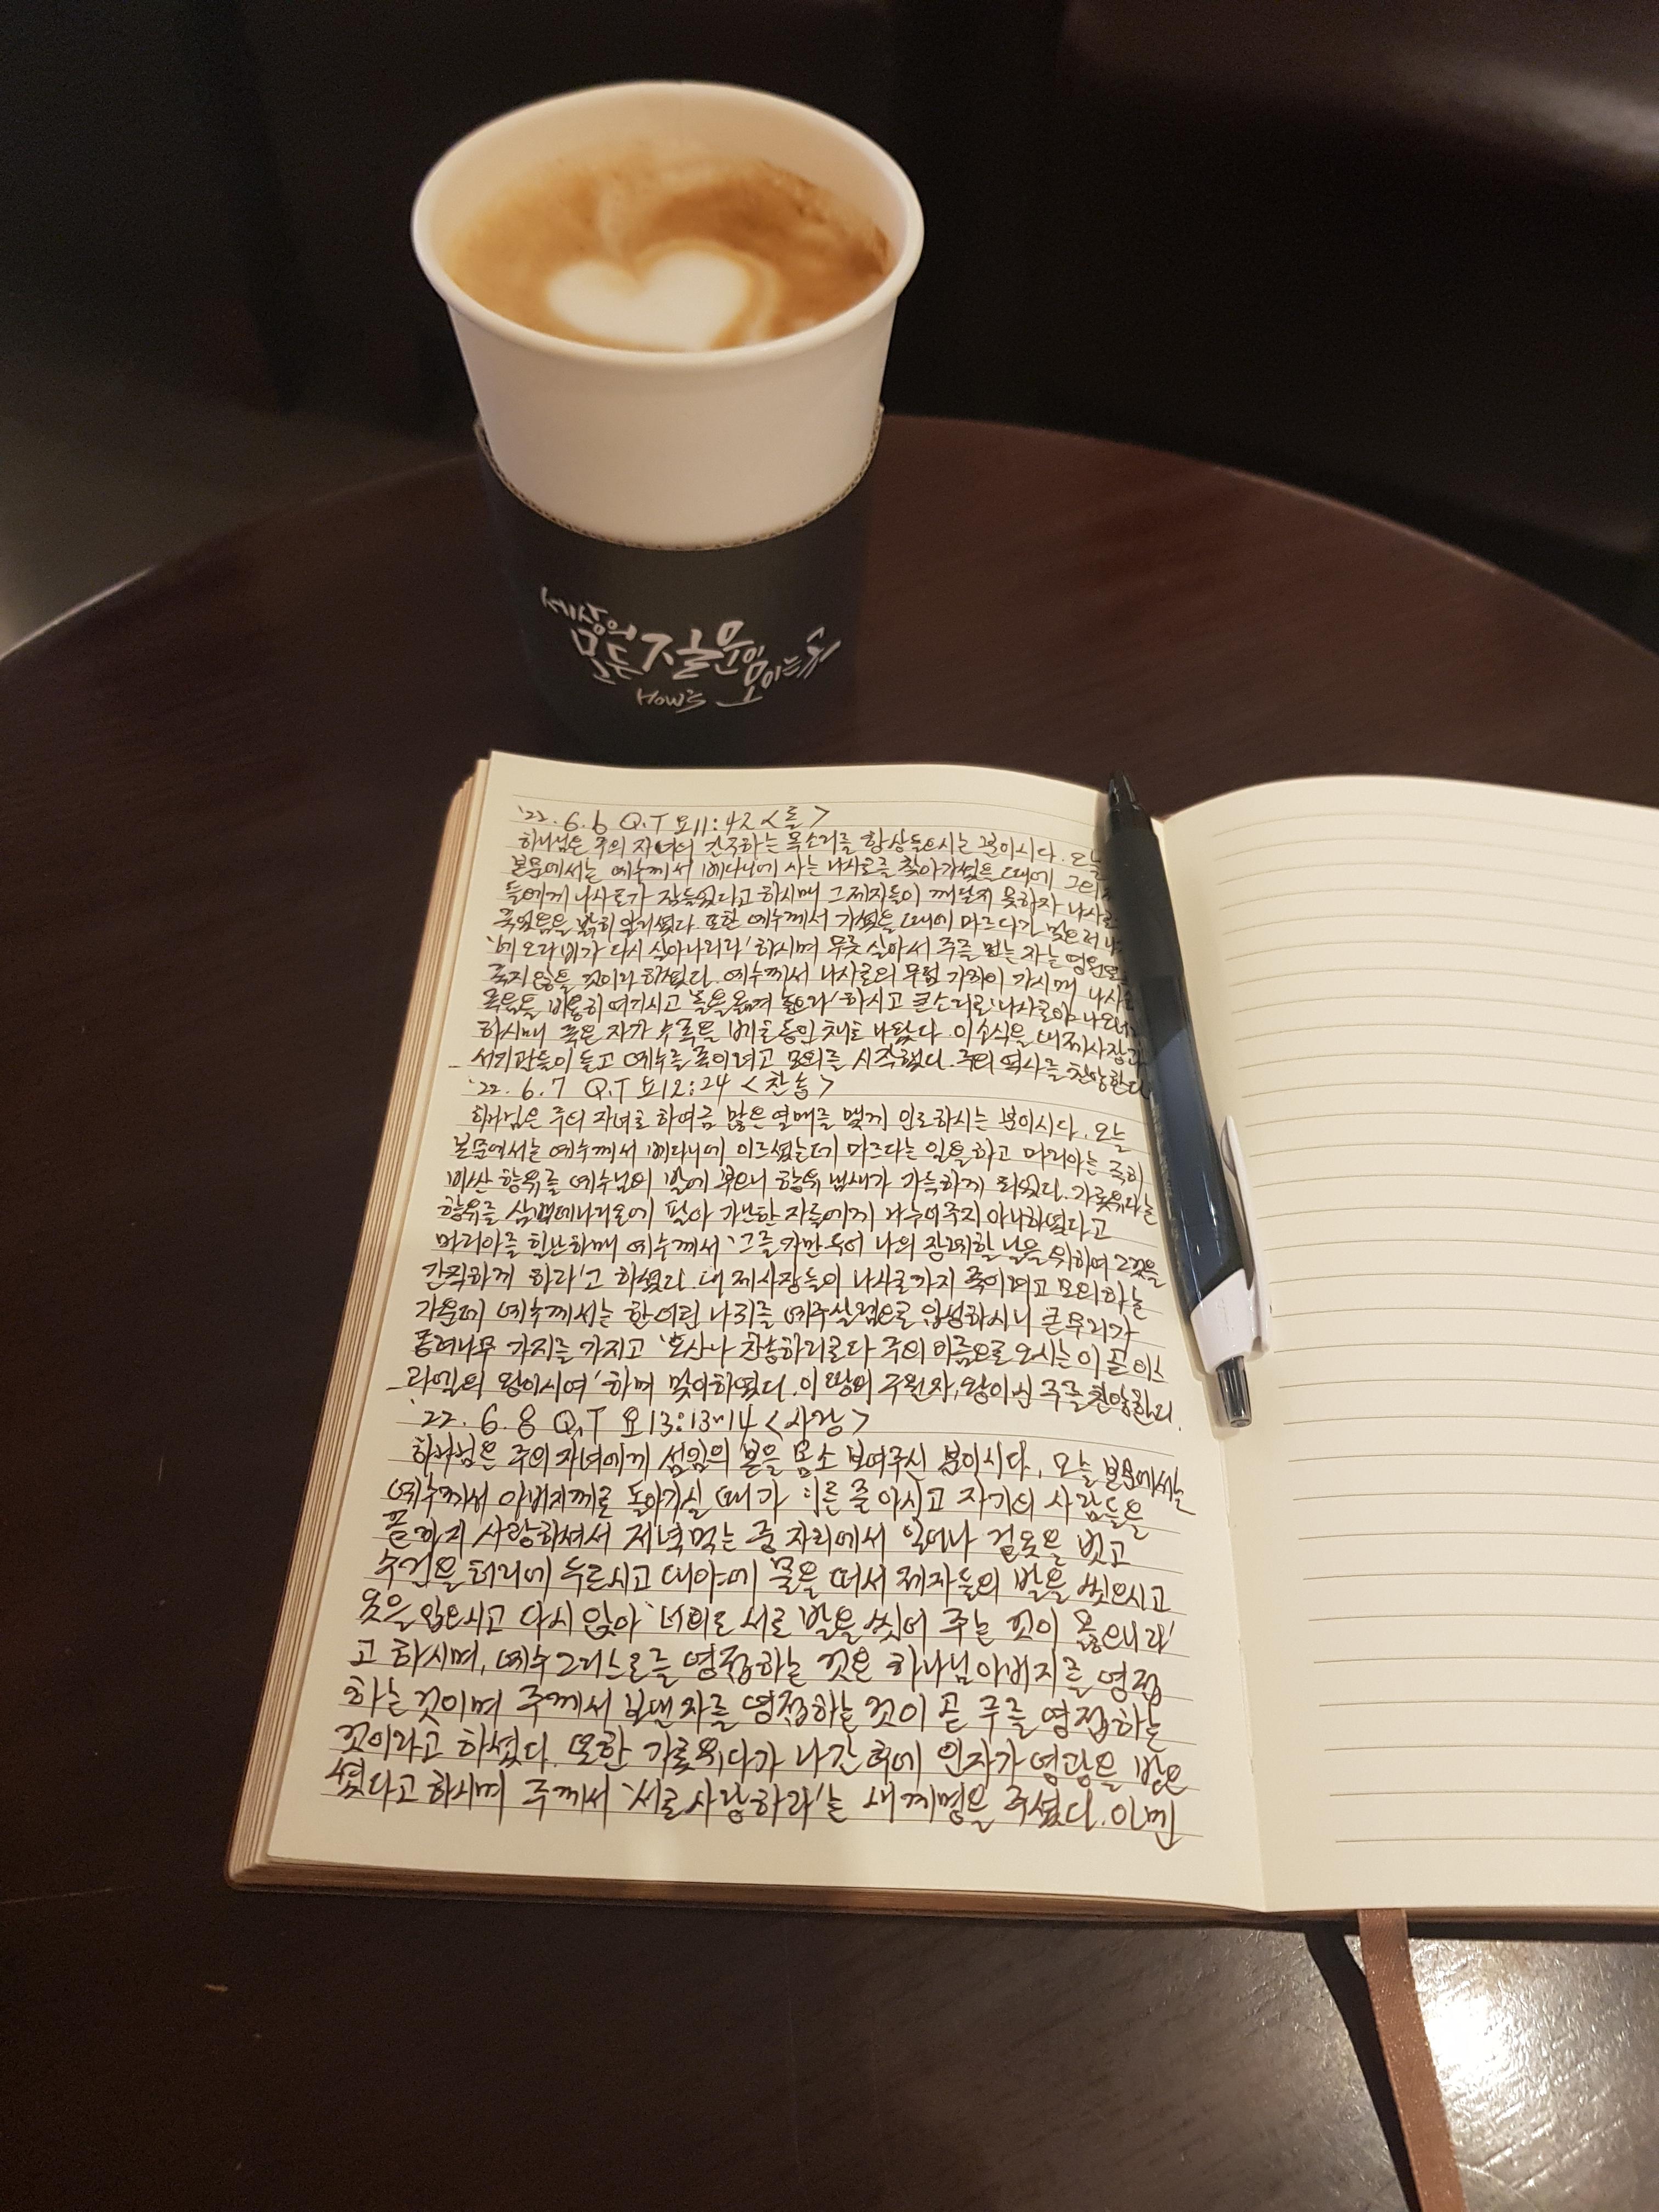 세상의
모든 질문이
모이는 곳
How's
'22. 6. 6 Q.T 요11:42 <돌>
하나님은 주의 자녀의 간구하는 목소리를 항상 들으시는 분이시다. 오늘
본문에서는 예수께서 베다니에 사는 나사로를 찾아가셨을 때에 그의
들에게 나사로가 잠들었다고 하시매 그 제자들이 깨닫지 못하자 나사로
죽었음을 밝히 알게 했다. 또한 예수께서 가셨을 때에 마르다가 맞으러 나
'네 오라비가 다시 살아나리라' 하시며 무릇 살아서 주를 믿는 자는 영원토
죽지 않을 것이라 하셨다. 예수께서 나사로의 무덤 가까이 가시매 나사
죽음을 비통히 여기시고 '돌을 옮겨 놓으라' 하시고 큰소리로 '나사로야 나오너
하시매 죽은 자가 수족을 베로 동인 채로 나왔다. 이 소식을 대제사장과
서기관들이 듣고 예수를 죽이려고 모의를 시작했다. 주의 역사를 찬양한다
'22. 6. 7 Q.T 요12:24 <찬송>
하나님은 주의 자녀로 하여금 많은 열매를 맺게 인도하시는 분이시다. 오늘
본문에서는 예수께서 베다니에 이르셨는데 마르다는 일을 하고 마리아는 극히
비싼 향유를 예수님의 발에 부으니 향유 냄새가 가득하게 되었다. 가룟유다는
향유를 삼백데나리온에 팔아 가난한 자들에게 나누어주지 아니하였다고
마리아를 힐난하매 예수께서 '그를 가만 두어 나의 장례할 날을 위하여 그것을
간직하게 하라'고 하셨다. 대제사장들이 나사로까지 죽이려고 모의하는
가운데 예수께서는 한 어린 나귀를 예루살렘으로 입성하시니 큰 무리가
종려나무 가지를 가지고 '호산나 찬송하리로다 주의 이름으로 오시는 이 곧 이스
라엘의 왕이시여' 하며 맞이하였다. 이 땅의 구원자, 왕이신 주를 찬양한다.
'22. 6. 8 Q.T 요13:13~14 <사랑>
하나님은 주의 자녀에게 섬김의 본을 몸소 보여주신 분이시다. 오늘 본문에서는
예수께서 아버지께로 돌아가실 때가 이른 줄 아시고 자기의 사람들을
끝까지 사랑하셔서 저녁먹는 중 자리에서 일어나 겉옷을 벗고
수건을 허리에 두르시고 대야에 물을 떠서 제자들의 발을 씻으시고
옷을 입으시고 다시 앉아 '너희도 서로 발을 씻어 주는 것이 옳으니라'
고 하시며, 예수 그리스도를 영접하는 것은 하나님 아버지를 영접
하는 것이며 주께서 보낸 자를 영접하는 것이 곧 주를 영접하는
것이라고 하셨다. 또한 가룟유다가 나간 후에 인자가 영광을 받으
셨다고 하시며 주께서 '서로 사랑하라'는 새 계명을 주셨다. 아멘